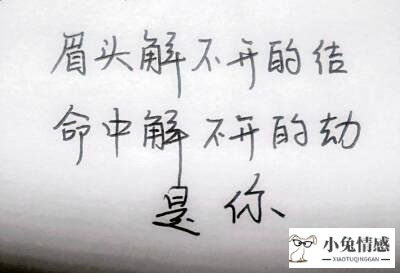 眉头解不开的结
命中解不开的劫
是你、
小兔情感
XIAOTUQINGGAN